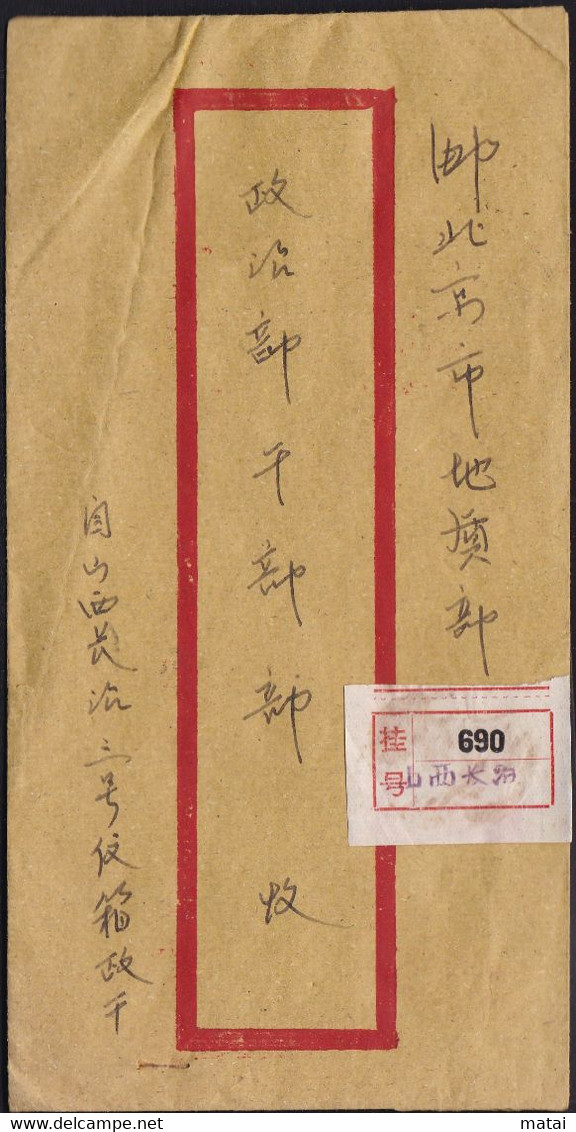 邮北京市地质部
政治部干部部 收
自山西长治三号信箱政干
挂号
690
山西长治
matai